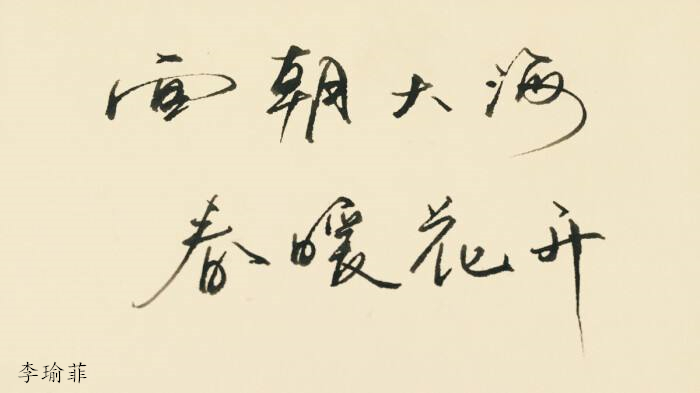 面朝大海
春暖花开
李瑜菲